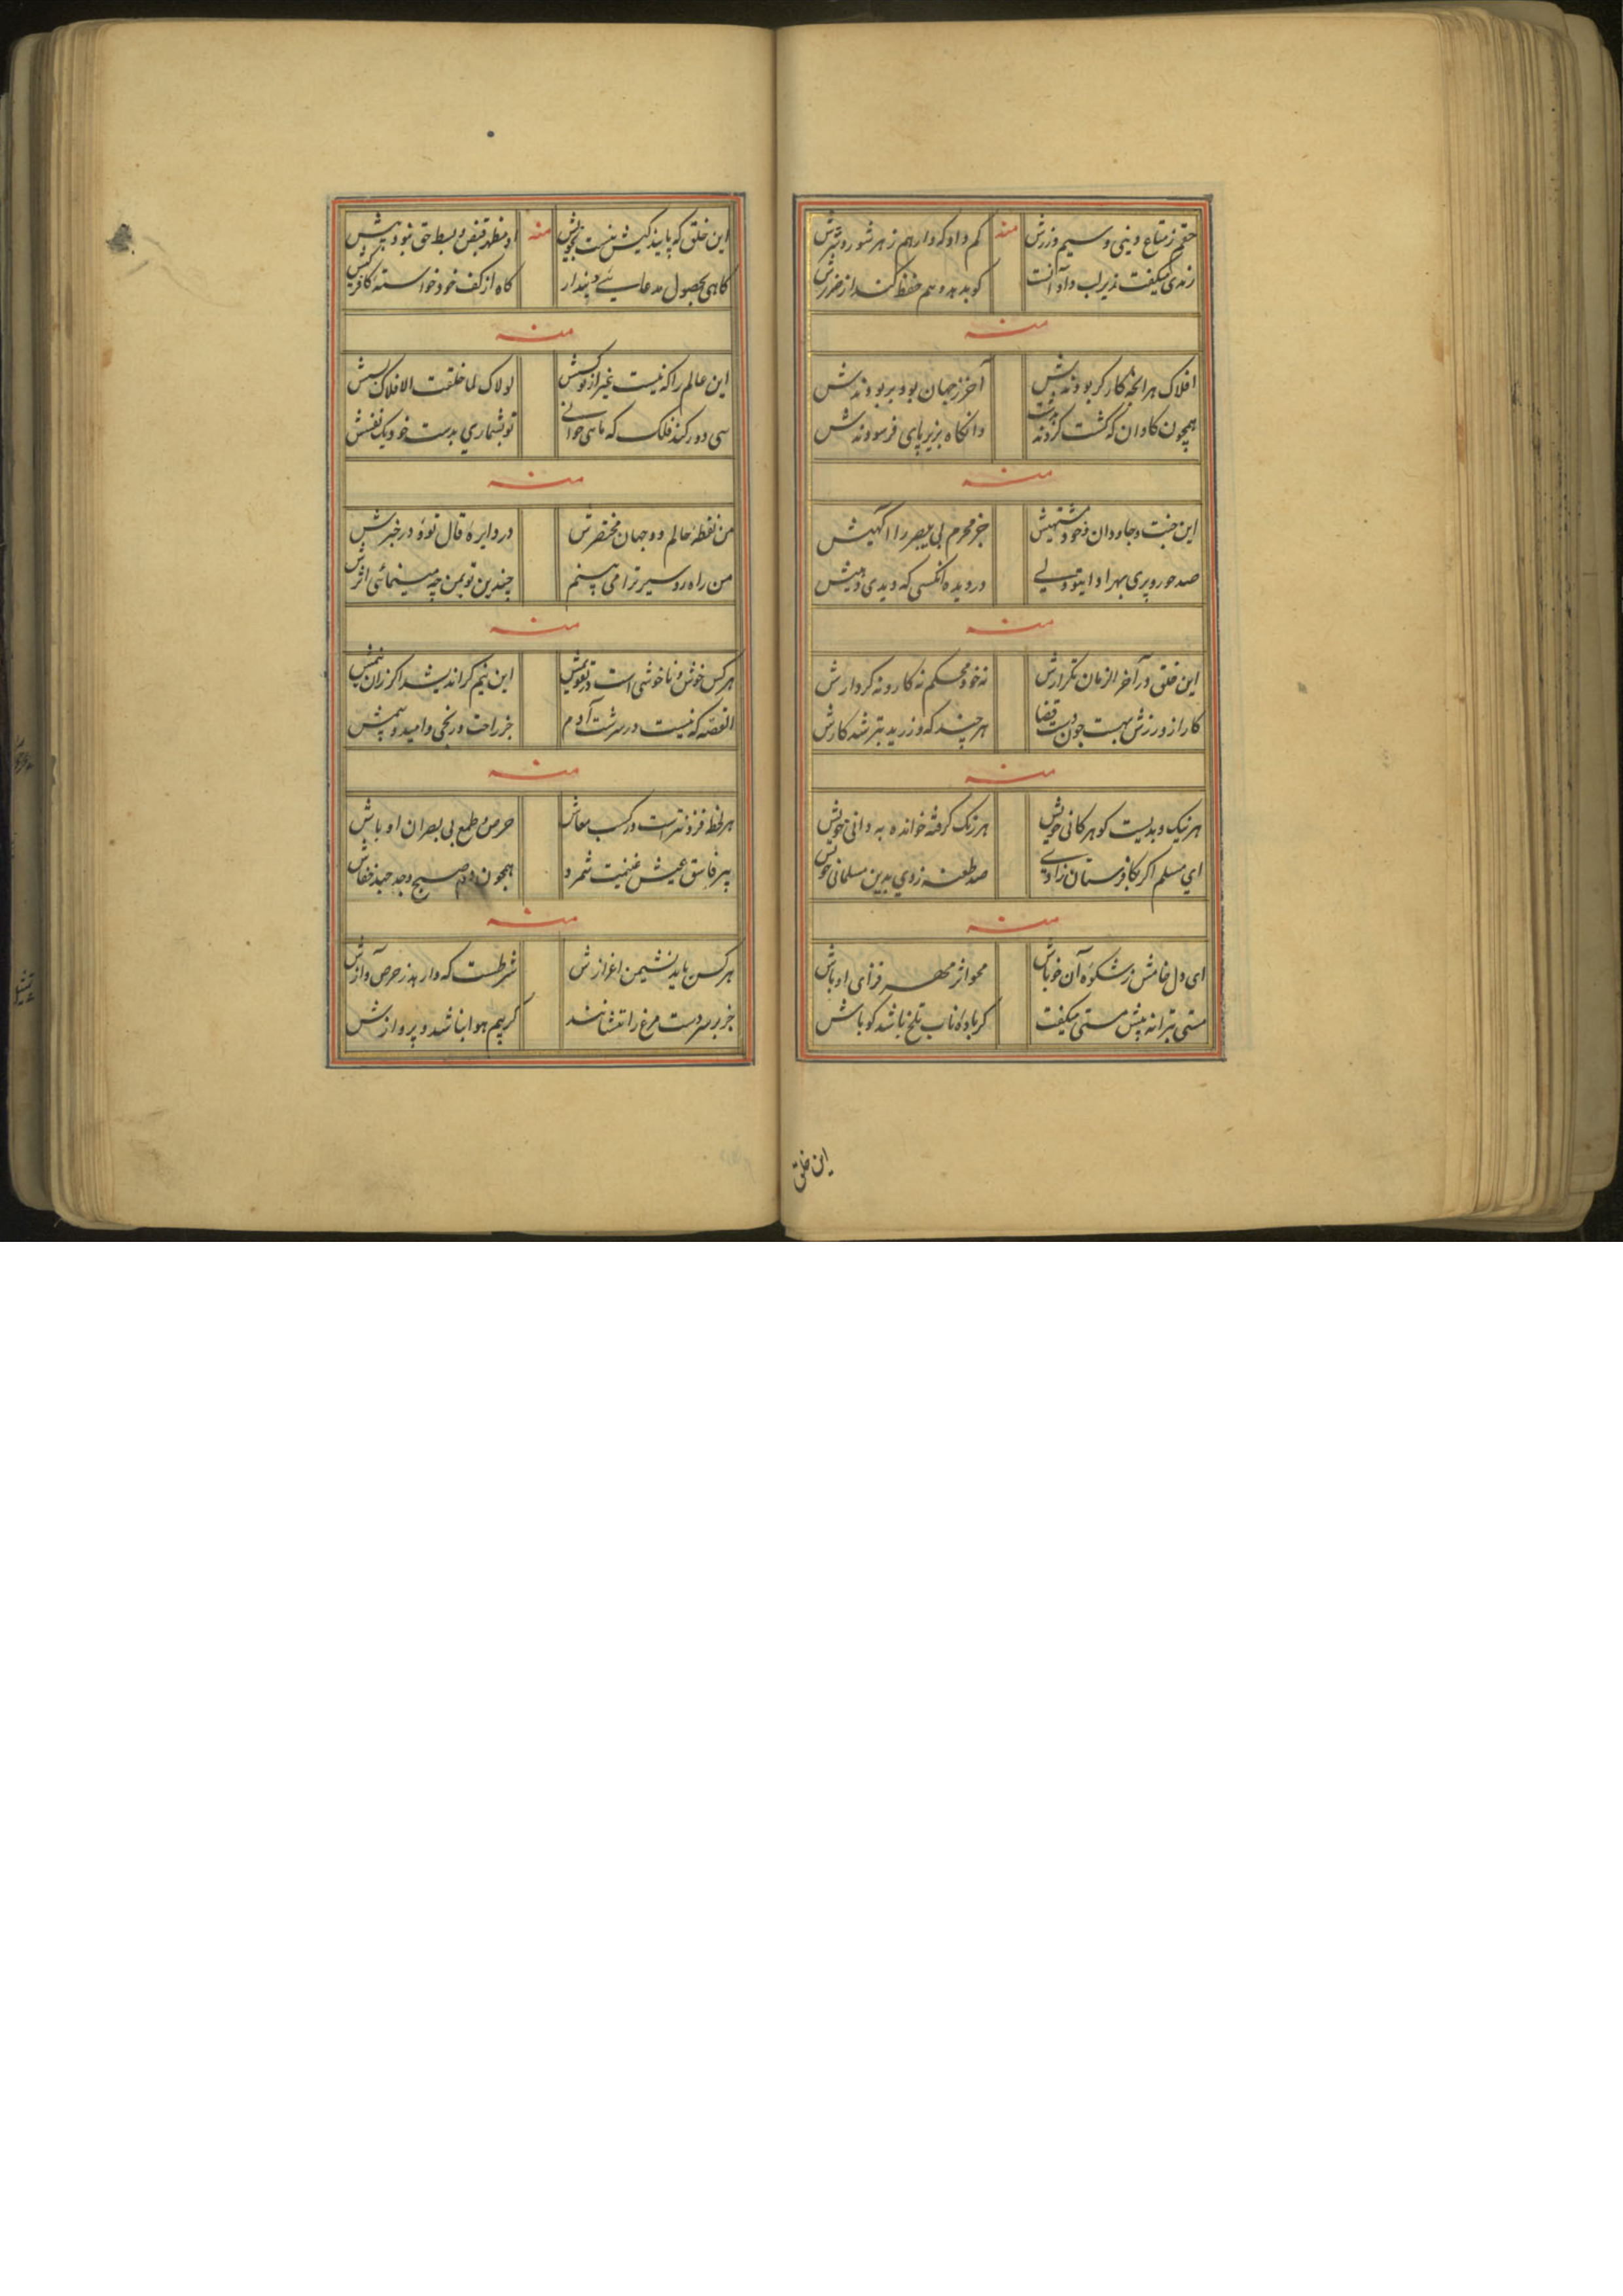 حقم ز متاع دینی و سیم و زرش منه کم داد که دارهم ز هر شور و شرش
رندی میگفت زیر لب داد آنست کو بدهد و هم حفظ کند از ضررش
منه
افلاک هر آنچه کار کر بودندش آخر ز جهان بود بربودندش
همچون کاوان که کشت کردند وانکاه بزیر پای فرسودندش
منه
این جنت و جاودان جز محرم بی بصر را آکهیش
صد حور و پری بهر ادا دردیده آنکسی که دیدی
منه
این خلق در آخر الزمان تکرارش نه خود محکم نه کار و نه کردارش
کار از ورزش بهست چون دست قضا هر چند که ورزید بتر شد کارش
منه
هر نیک و بدیست کوهر کانی خویش هر زنک کرفته خوانده به دانی خویش
ای مسلم اکر بکافرستان زادی صد طعنه زدی بدین مسلمانی خویش
منه
ای دل خامش ز شکوه آن خو باش محو اثر مهر فزای او باش
مستی بترانه پیش مستی میکفت کر باده ناب تلخ باشد کو باش
این خلق
این خلق که پابند کیش نیست منه او مظهر قبض و بسط حق نبود
کاهی بحصول مدعایی پندار کاه از کف خود خواسته
منه
این عالم را که نیست غیر از تو کسش لولاک لما خلقت الافلاک بسش
سی دور کند فلک که ماهی خوانی تو بشماری بدست خود یک نفسش
منه
من نقطه عالم دو جهان مختصرش در دایره قال توه در خبرش
من راه رو سیر ترا می بینم چندین تو بمن چه مینمائی اثرش
منه
هر کس خوش و ناخوشی است این بیم کر اندیشد اکر زان
القصه که نیست در سرشت آدم جز راحت و رنجی و امید و بیمش
منه
هر لحظه فزونتر است در کسب معاش حرص و طمع بی بصران اوباش
پیر فاسق عیش غنیمت شمرد همچون دم صبح وجد چند خفاش
منه
هر کس باید نشیمن اعزازش شرطست که دارند ز حرص آوازش
جز بر سر دست مرغ را ننشانند کر بیم هوا نباشد و پروازش